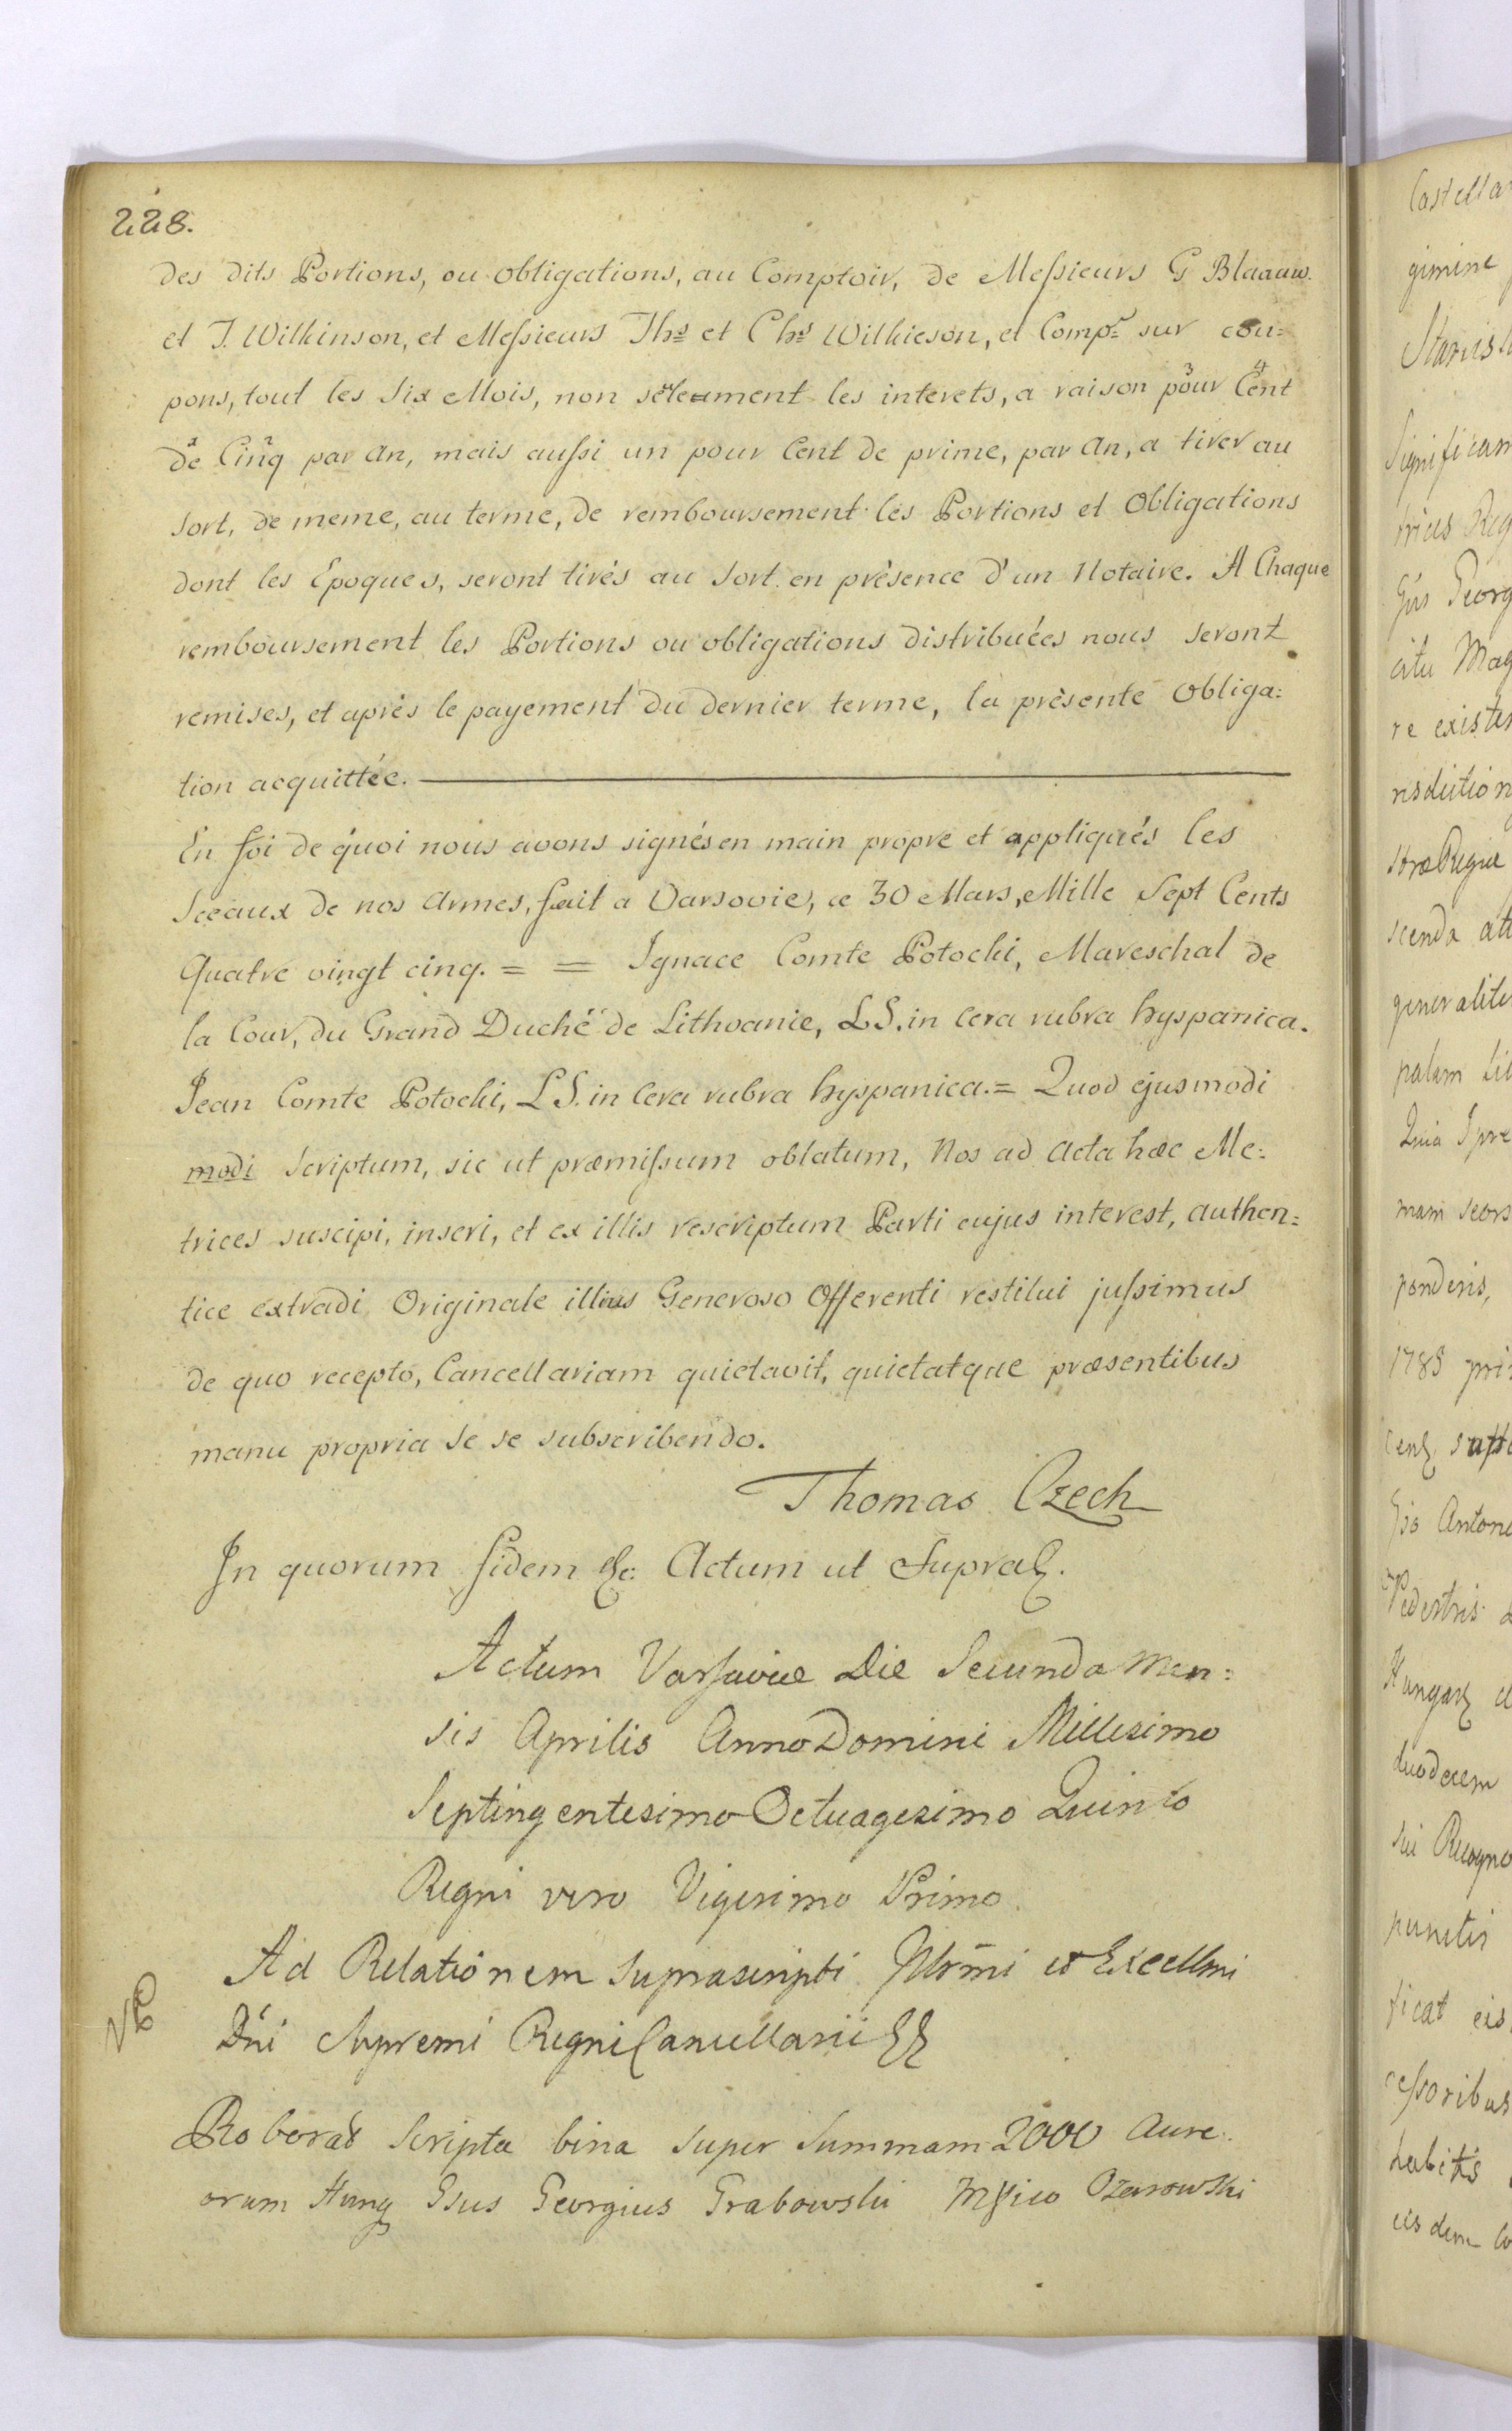 228.
des dits Portions, ou obligations, au Comptoir, de Messieurs G Blaauw.
et J. Wilkinson, et Messieurs Ths et Chs Wilkieson, et Compe sur cou=
pons, tout les Six Mois, non seuleument les interets, a raison pour Cent
de Cinq par An, mais aussi un pour Cent de prime, par An, a tirer au
sort, de meme, au terme, de remboursement les Portions et Obligations
dont les Epoques, seront tirés au sort en prèsence d'un Notaire. A Chaque
remboursement les Portions ou obligations distribuées nous seront
remises, et après le payement du dernier terme, la prèsente obliga=
tion acquittée.
En foi de quoi nous avons signés en main propre et appliqués les
Sceaux de nos Armes, fait a Varsovie, ce 30 Mars, Mille Sept Cents
Quatre vingt cinq. = = Ignace Comte Potocki, Mareschal de
la Cour, du Grand Duché de Lithvanie, L S. in Cera rubra hyspanica.
Jean Comte Potocki, L S. in Cera rubra hyspanica. = Quod ejusmodi
modi Scriptum, sic ut præmissum oblatum, Nos ad Acta hæc Me=
trices suscipi, inseri, et ex illis rescriptum Parti cujus interest, authen=
tice extradi Originale illius Generoso Offerenti restitui jussimus
de quo recepto, Cancellariam quietavit, quietatque præsentibus
manu propria se se subscribendo.
Thomas Czech
In quorum fidem &c: Actum ut Supra
Actum Varsaviæ Die Secunda Men=
sis Aprilis Anno Domini Millesimo
Septingentesimo Octuagesimo Quinto
Regni vero Vigesimo Primo.
Ad Relationem suprascripti Illrmi et Excellmi
Dni Supremi Regni Cancellarii
Roborat Scripta bina super Summam 2000 Aure=
orum Hung Gsus Georgius Grabowski Mfico Ożarowski